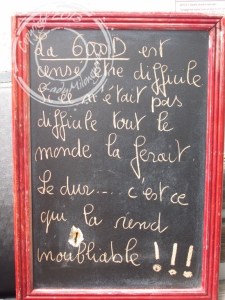 La 6000D est
censé être difficile
Si elle n'était pas
difficile tout le
monde la ferait.
Le dur.... c'est ce
qui la rend
inoubliable !!!